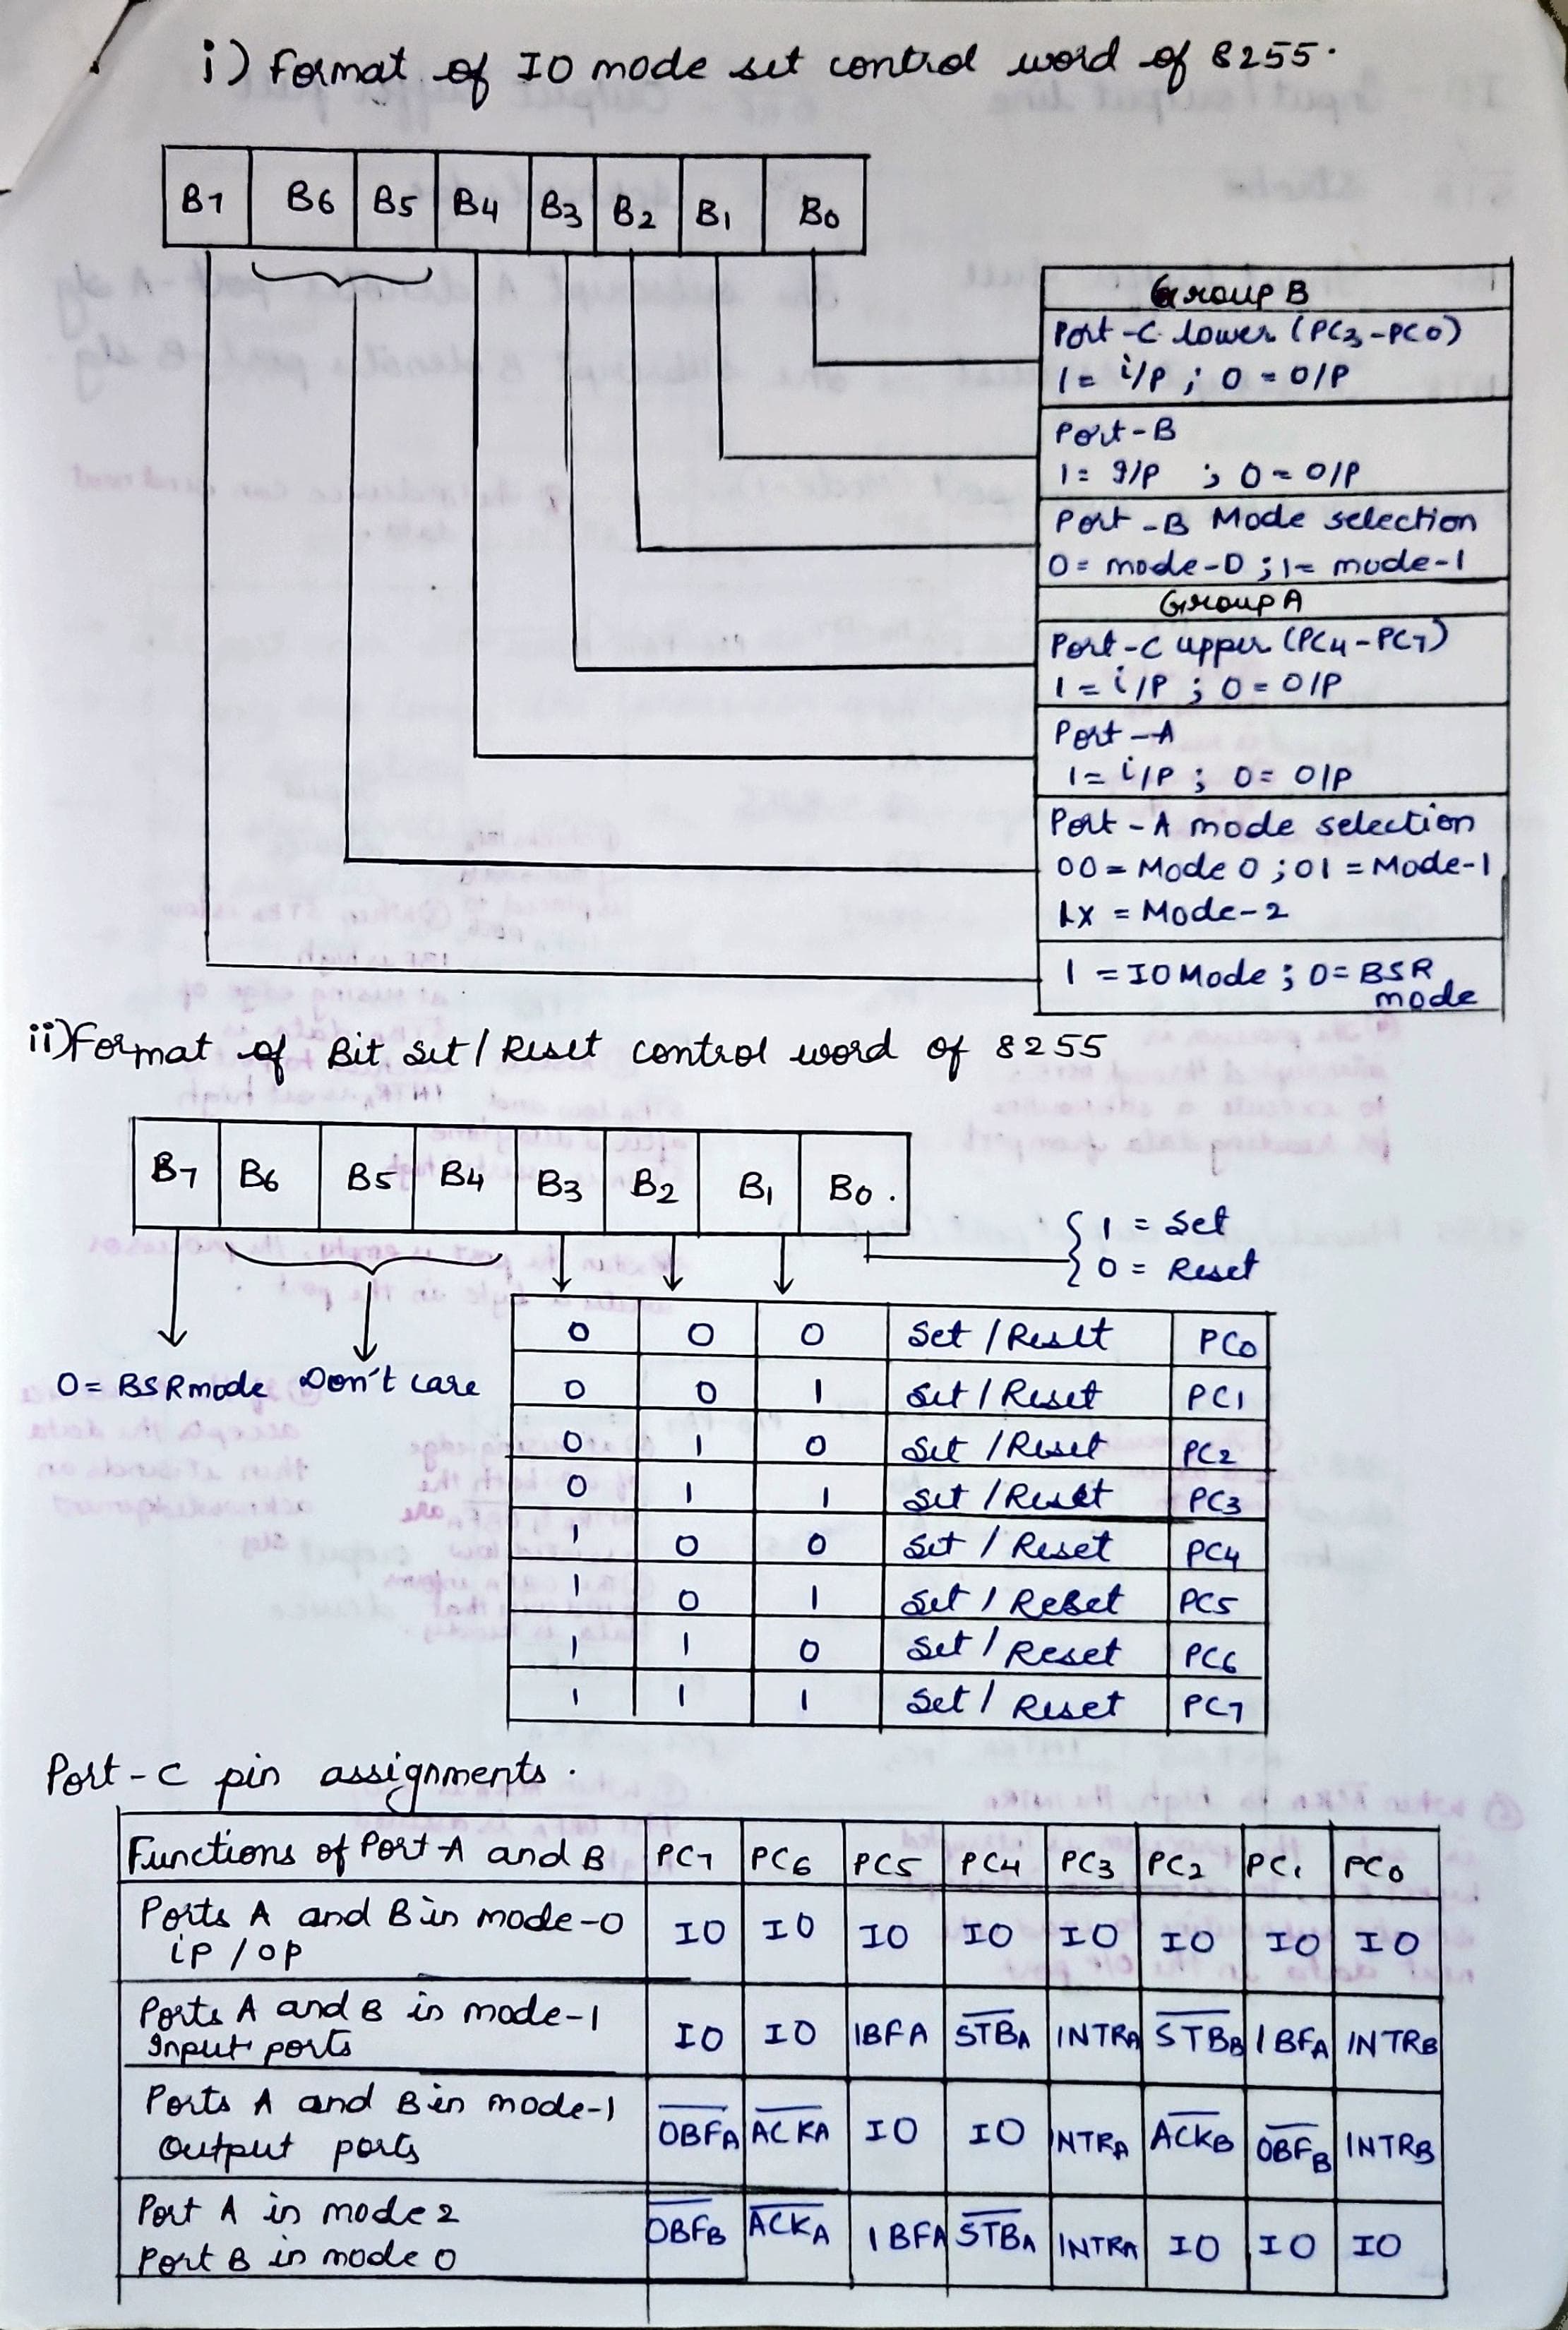 i) Format of IO mode set control word of 8255.
B7 B6 B5 B4 B3 B2 B1 B0
Group B
Port-C lower (PC3-PC0)
1 = i/p ; 0 = O/P
Port-B
1 = I/P ; 0 = O/P
Port-B Mode selection
0 = mode-0 ; 1 = mode-1
Group A
Port-C upper (PC4-PC7)
1 = i/P ; 0 = O/P
Port-A
1 = i/P ; 0 = O/P
Port-A mode selection
00 = Mode 0 ; 01 = Mode-1
1x = Mode-2
1 = IO Mode ; 0 = BSR
mode
ii) Format of Bit Set / Reset control word of 8255
B7 B6 B5 B4 B3 B2 B1 B0.
{ 1 = Set
0 = Reset
0 = BSR mode Don't care
0 0 0 Set / Reset PC0
0 0 1 Set / Reset PC1
0 1 0 Set / Reset PC2
0 1 1 Set / Reset PC3
1 0 0 Set / Reset PC4
1 0 1 Set / Reset PC5
1 1 0 Set / Reset PC6
1 1 1 Set / Reset PC7
Port-C pin assignments.
Functions of Port A and B PC7 PC6 PC5 PC4 PC3 PC2 PC1 PC0
Ports A and B in mode-0
ip / op IO IO IO IO IO IO IO IO
Ports A and B in mode-1
Input ports IO IO IBFA S̅T̅B̅A INTRA S̅T̅B̅B IBFA INTRB
Ports A and B in mode-1
Output ports O̅B̅F̅A A̅C̅K̅A IO IO INTRA A̅C̅K̅B O̅B̅F̅B INTRB
Port A in mode 2
Port B in mode 0 O̅B̅F̅B A̅C̅K̅A IBFA S̅T̅B̅A INTRA IO IO IO